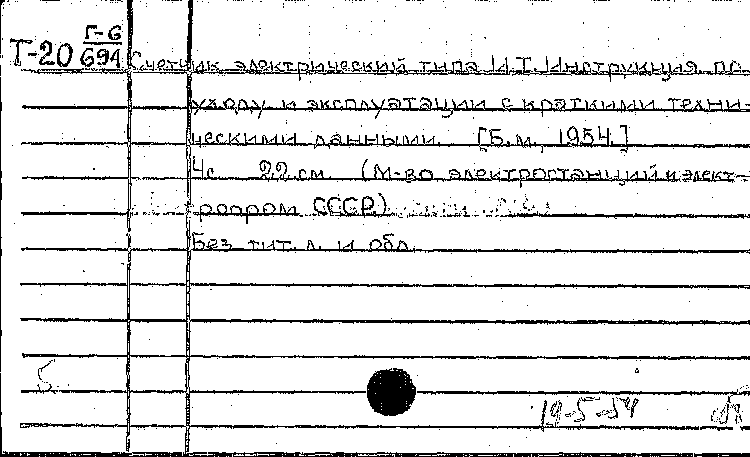 Г-6
Т-20 694 Счетчик электрический типа И.Т. Инструкция по
уходу и эксплуатации с краткими техни-
ческими данными. [Б.м., 1954.]
4с. 22 см. (М-во электростанций и элект-
ропром СССР)
Без тит. л. и обл.
5
19-5-54